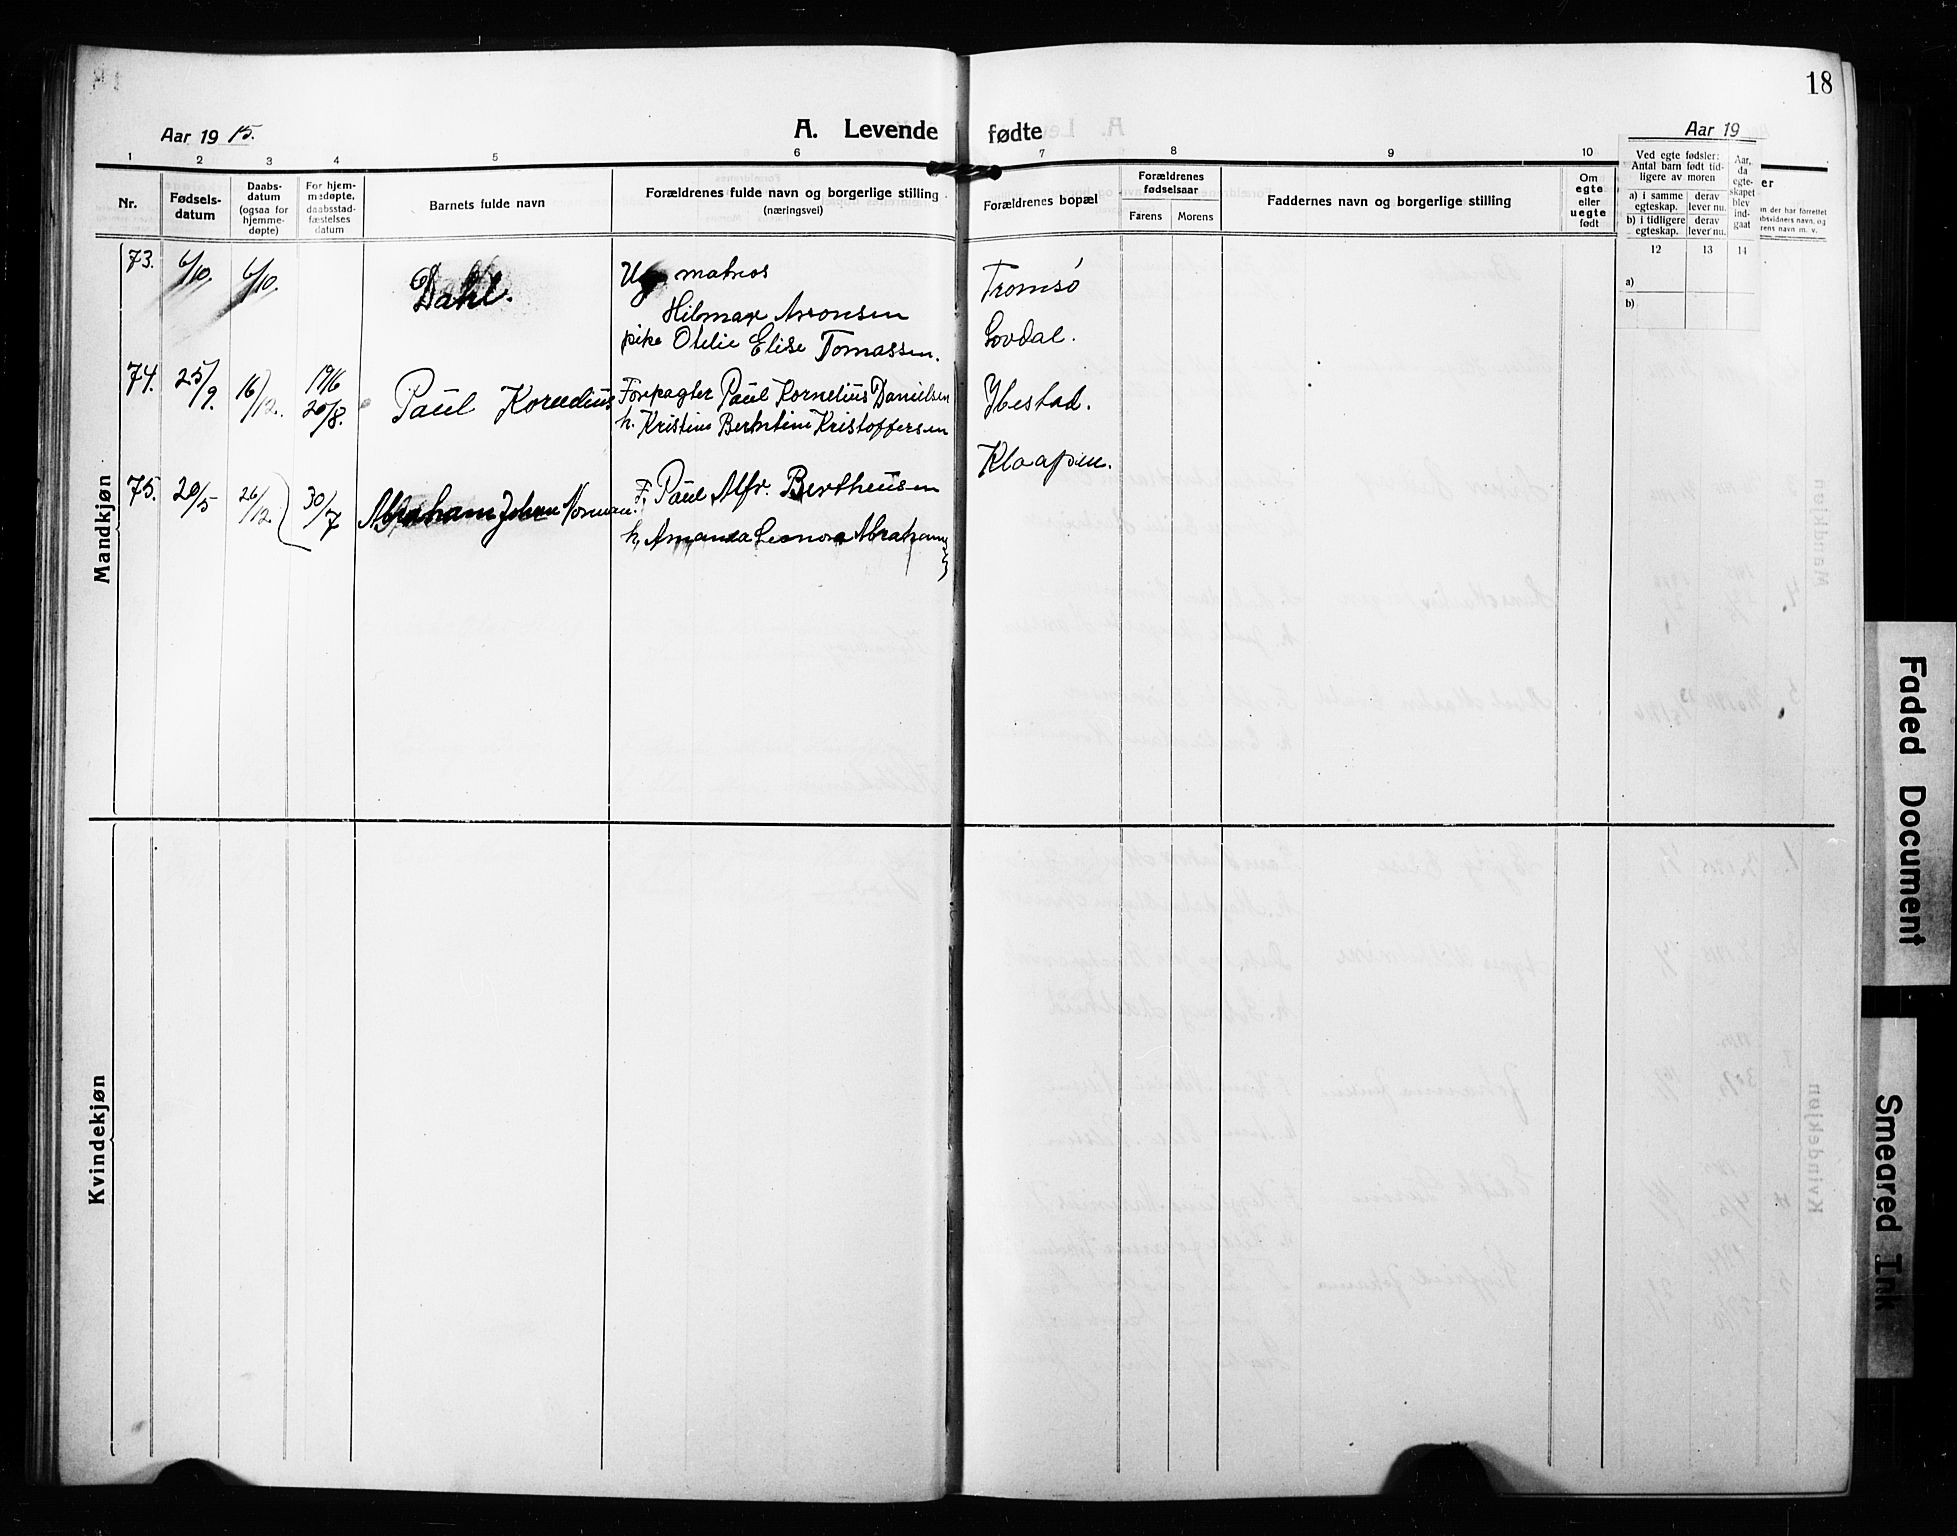 18
Aar 19 15.
A. Levende fødte
Aar 19
1 2 3 4 5 6 7 8 9 10
Nr.
Fødsels-
datum
Daabs-
datum
(ogsaa for
hjemme-
døpte)
For hjem-
medøpte,
daabsstad-
fæstelses
datum
Barnets fulde navn
Forældrenes fulde navn og borgerlige stilling
(næringsvei)
Forældrenes bopæl
Forældrenes
fødselsaar
Farens
Morens
Faddernes navn og borgerlige stilling
Om
egte
eller
uegte
født
Ved egte fødsler:
Antal barn født tid-
ligere av moren
a) i samme
egteskap.
derav
lever nu.
b) i tidligere
egteskap.
derav
lever nu.
Aar,
da
egte-
skapet
blev
ind-
gaat
12 13 14
a)
b)
er
n der har forrettet
absvidners navn, og
rens navn m. v.
Mandkjøn
73. 6/10 6/10 Dahl.
Ug matros
Hilmar Aronsen
pike Otelie Elise Tomassen.
Tromsø
Lovdal.
74. 25/9. 16/12. 1916 20/8. Paul Kornelius
Forpagter Paul Kornelius Danielsen
h. Kristine Berntine Kristoffersen
Ibestad.
75. 20/5 26/12 30/7 Abraham Johan Norman.
F. Paul Alfr. Bertheusen
h. Amanda Leonora Abraham
Kvindekjøn
Faded Document
Smeared Ink